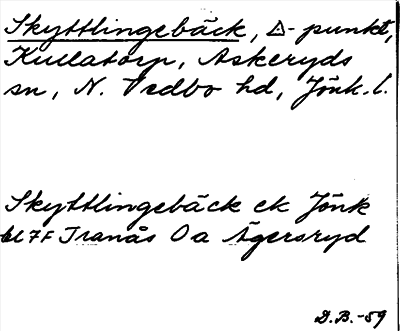 Skyttlingebäck, △-punkt,
Kullatorp, Askeryds
sn, N. Vedbo hd, Jönk. l.
Skyttlingebäck ek Jönk
bl 7F Tranås 0 a Ägersryd
D.B.-59